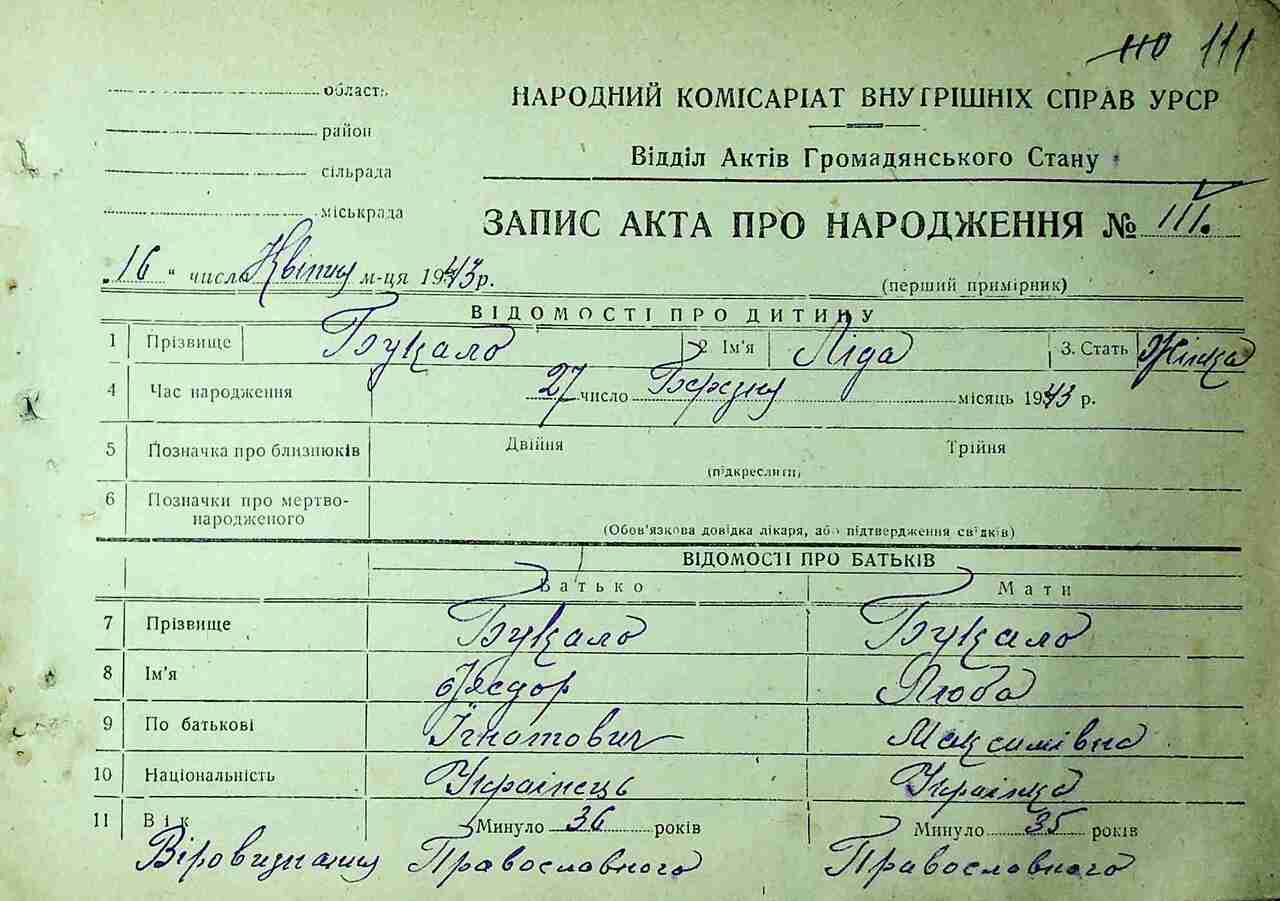 110 111
область
район
сільрада
міськрада
НАРОДНИЙ КОМІСАРІАТ ВНУТРІШНІХ СПРАВ УРСР
Відділ Актів Громадянського Стану
ЗАПИС АКТА ПРО НАРОДЖЕННЯ № 111.
„16“ число Квітня м-ця 1943 р.
(перший примірник)
ВІДОМОСТІ ПРО ДИТИНУ
1 Прізвище Букало 2 Ім'я Ліда 3. Стать Жінка
4 Час народження 27 число Березня місяць 1943 р.
5 Позначка про близнюків Двійня Трійня
(підкреслити)
6 Позначки про мертво-
народженого
(Обов'язкова довідка лікаря, або підтвердження свідків)
ВІДОМОСТІ ПРО БАТЬКІВ
Батько Мати
7 Прізвище Букало Букало
8 Ім'я Люба
9 По батькові Ігнатович Максимівна
10 Національність Українець Українка
11 Вік Минуло 36 років Минуло 35 років
Віровизнання Православного Православного